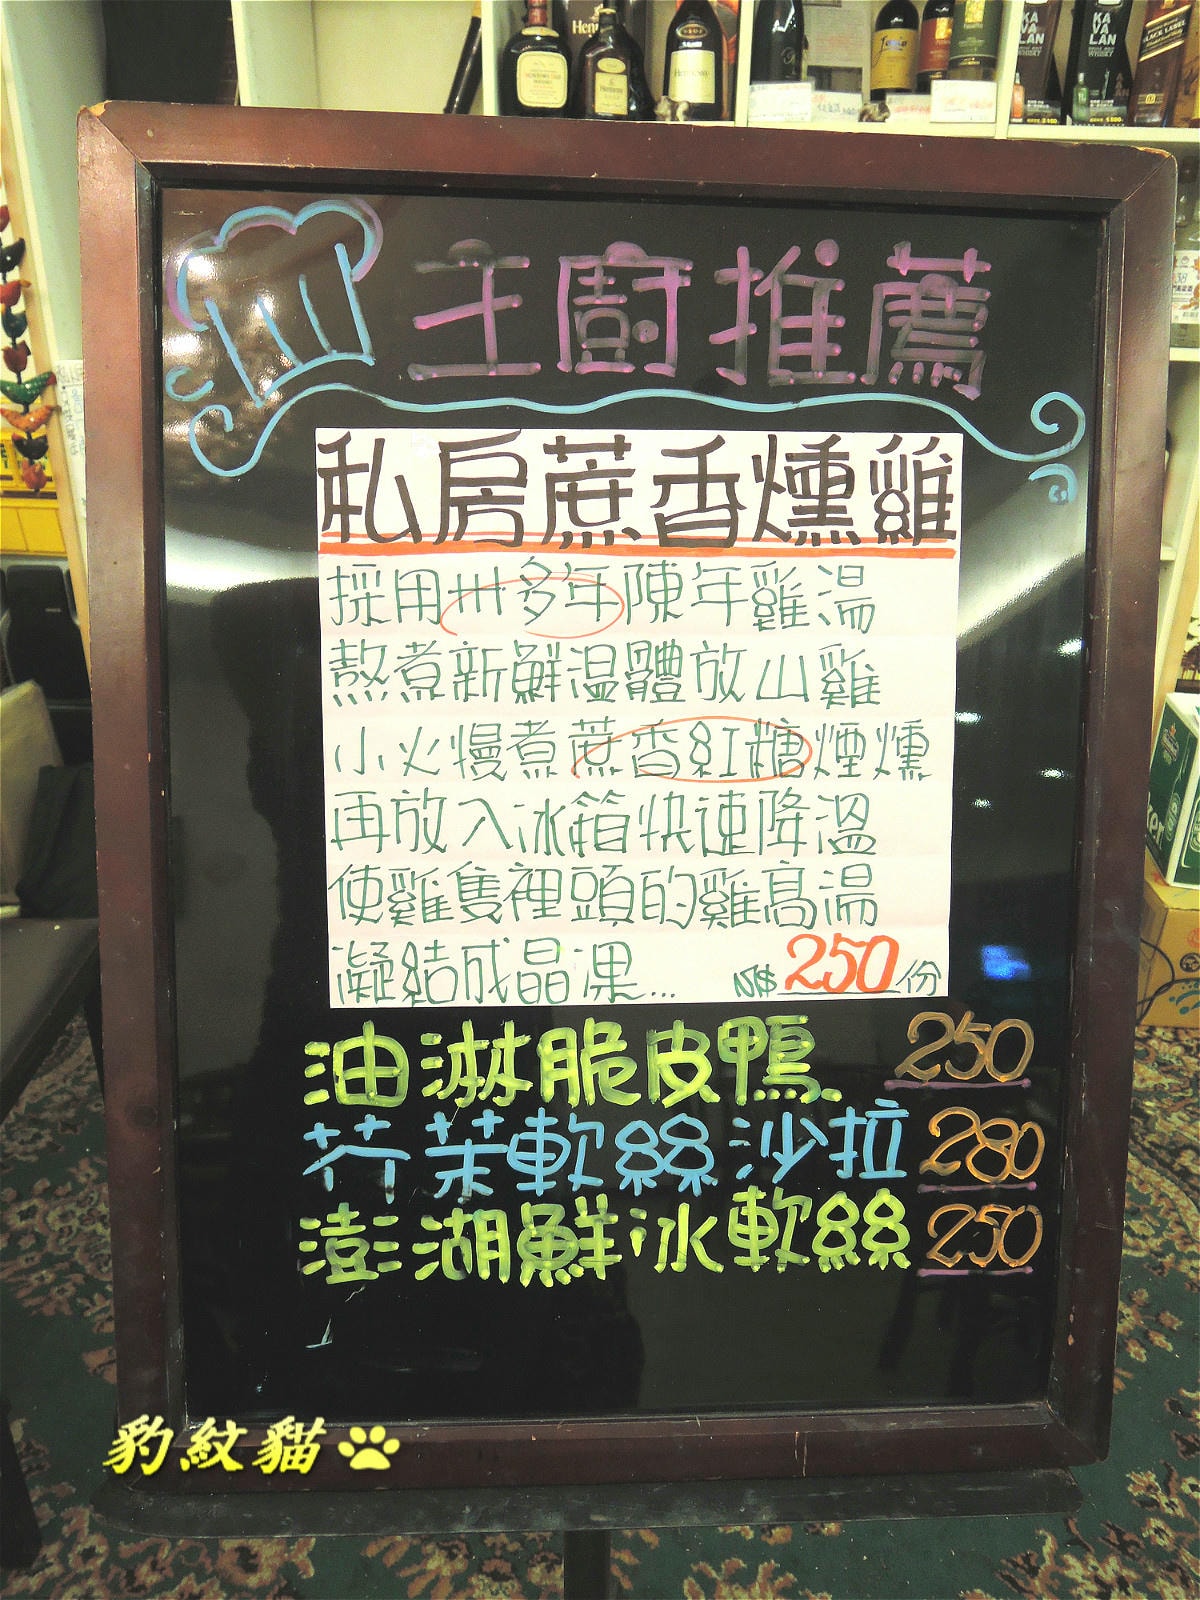 主廚推薦
私房蔗香燻雞
採用卅多年陳年雞湯
熬煮新鮮温體放山雞
小火慢煮蔗香紅糖煙燻
再放入冰箱快速降溫
使雞隻裡頭的雞高湯
凝結成晶凍... N$ 250份
油淋脆皮鴨 250
芥茉軟絲沙拉 280
澎湖鮮冰軟絲 250
豹紋貓
Hennessy
KAVALAN
KAVALAN
BLACK LABEL